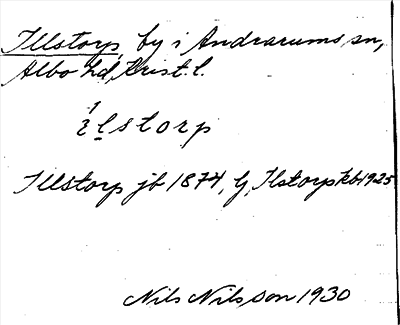 Illstorp, by i Andrarums sn,
Albo hd, Krist. l.
ìlstorp
Illstorp jb 1874, G, Ilstorp kb 1925
Nils Nilsson 1930